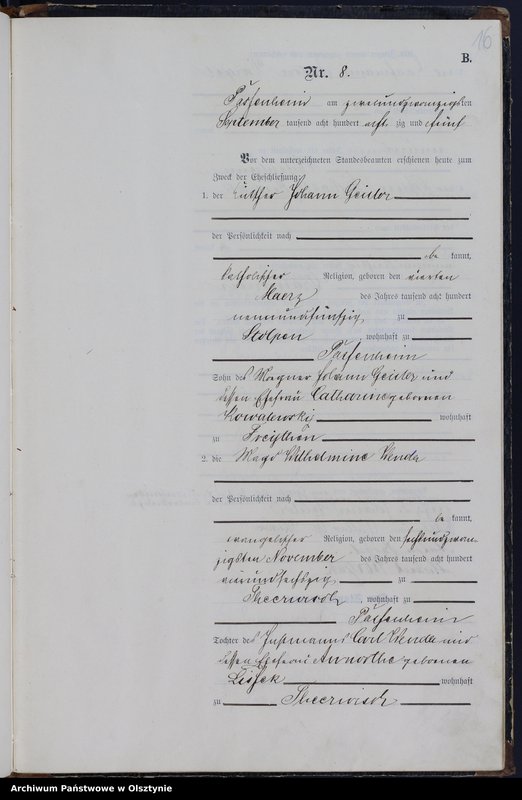 16
B.
Nr. 8.
Passenheim am zweiundzwanzigsten
September tausend acht hundert acht zig und fünf
Vor dem unterzeichneten Standesbeamten erschienen heute zum
Zweck der Eheschließung:
1. der Johann Geisler
der Persönlichkeit nach
be kannt,
katholischer Religion, geboren den vierten
Maerz des Jahres tausend acht hundert
neunundfünfzig, zu
Stolpen, wohnhaft zu
Passenheim
Sohn des Johann Geisler und
dessen Ehefrau Catharine geborenen
Kowalewski wohnhaft
zu
2. die Magd Wilhelmine Wenda
der Persönlichkeit nach
be kannt,
evangelischer Religion, geboren den sechsundzwan-
zigsten November des Jahres tausend acht hundert
vierundsechszig, zu
Theerwisch, wohnhaft zu
Passenheim
Tochter des Instmanns Carl Wenda und
dessen Ehefrau geborenen
wohnhaft
zu Theerwisch
Archiwum Państwowe w Olsztynie